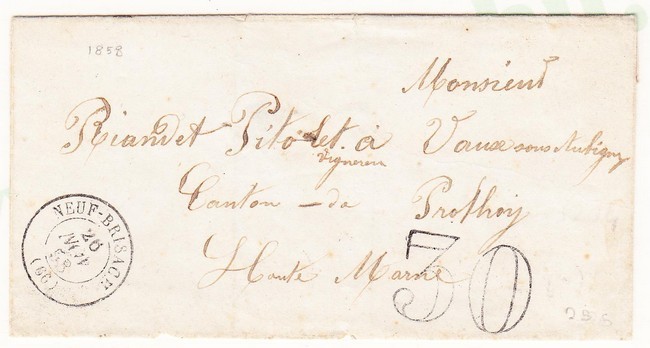 1858
Monsieur
Riandet Pitolet à Vaux sous Aubigny
vigneron
Canton de Prothoy
Haute Marne
30
NEUF-BRISACH
26
58
(66)